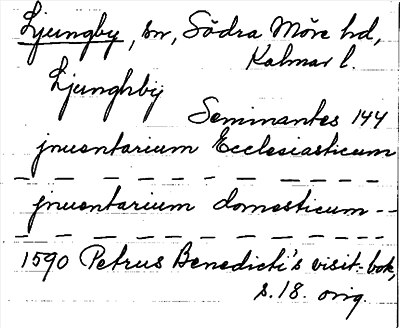 Ljungby, sn, Södra Möre hd,
Kalmar l.
Ljunghby
Seminantes 144
jnuentarium Ecclesiasticum
— — — — — — — — —
jnuentarium domesticum - -
— — — — — — — — —
1590 Petrus Benedicti's visit.bok,
s.18. orig.